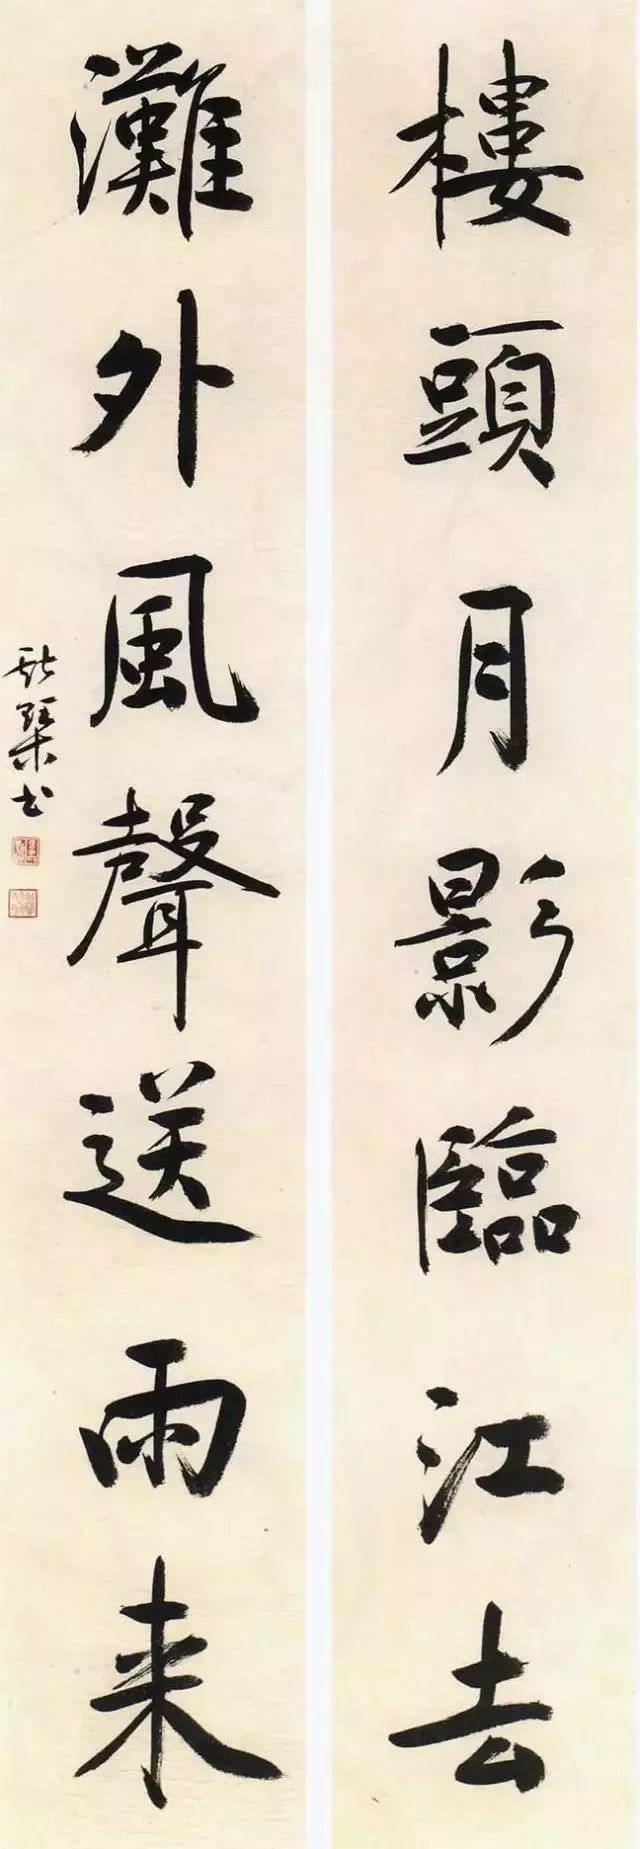 樓頭月影臨江去
灘外風聲送雨来